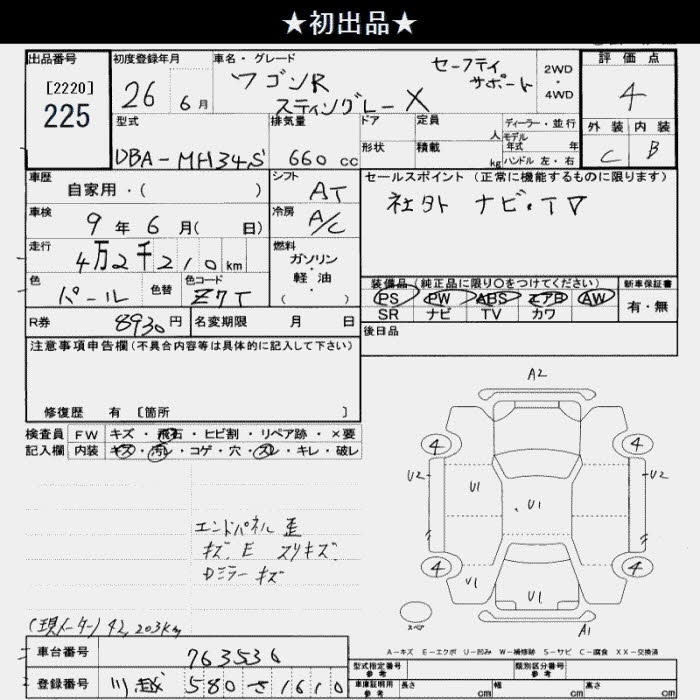 ★初出品★
出品番号
[2220]
225
初度登録年月
26 6月
車名・グレード
ワゴンR セーフティ サポート
スティングレー X
2WD
・
4WD
評価点
4
外装 内装
C B
型式
DBA-MH34S
排気量
660 cc
ドア 定員 人
形状 積載 kg
ディーラー・並行
モデル
年式 年
ハンドル 左・右
車歴
自家用・( )
シフト
AT
冷房
A/C
車検
9年6月( 日)
走行
4万2千210km
燃料
ガソリン
・
軽油
( )
色
パール
色替
色コード
Z7T
セールスポイント(正常に機能するものに限ります)
社外 ナビ・TV
装備品(純正品に限り○をつけてください)
PS PW ABS エアB AW
SR ナビ TV カワ
新車保証書
有・無
後日品
R券 8930円
名変期限 月 日
注意事項申告欄(不具合内容等は具体的に記入して下さい)
修復歴 有 [箇所 ]
検査員 FW キズ・飛石・ヒビ割・リペア跡・×要
記入欄 内装 キズ・汚レ・コゲ・穴・スレ・キレ・破レ
エンドパネル 歪
キズ. E スリキズ.
Dミラー キズ
(現メーター) 42,203km
A2
4 4
U2 U2
U1
U1
4 4
U1
U1
A1
スペア
A-キズ E-エクボ U-凹み W-補修跡 S-サビ C-腐食 XX-交換済
車台番号 763536
登録番号 川越 580 さ 1610
型式指定番号
参考
類別区分番号
参考
車庫証明用
参考
長さ cm
幅 cm
高さ cm